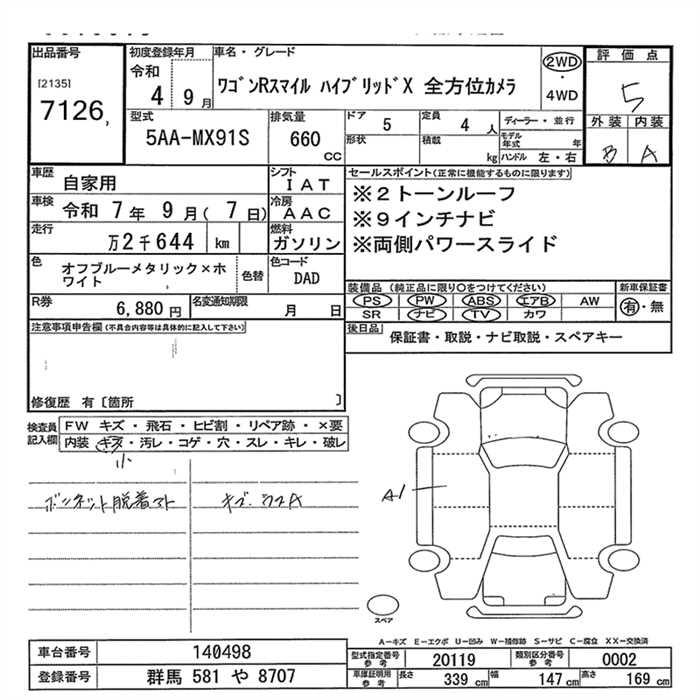 出品番号
[2135]
7126
初度登録年月
令和
4 9月
車名・グレード
ワゴンRスマイル ハイブリッドX 全方位カメラ
2WD
・
4WD
評価点
5
外装 内装
B A
型式
5AA-MX91S
排気量
660
cc
ドア 5
形状
定員 4 人
積載 kg
ディーラー・並行
モデル
年式 年
ハンドル 左・右
車歴 自家用
シフト IAT
車検 令和 7年 9月( 7日)
冷房 AAC
走行 万2千644 km
燃料 ガソリン
色 オフブルーメタリック×ホ
ワイト
色替
色コード DAD
R券 6,880円
名変通知期限 月 日
セールスポイント(正常に機能するものに限ります)
※2トーンルーフ
※9インチナビ
※両側パワースライド
装備品(純正品に限り○をつけてください)
PS PW ABS エアB AW
SR ナビ TV カワ
新車保証書
有・無
後日品
保証書・取説・ナビ取説・スペアキー
注意事項申告欄(不具合内容等は具体的に記入して下さい)
修復歴 有〔箇所 〕
検査員
記入欄
FW キズ・飛石・ヒビ割・リペア跡・×要
内装 キズ・汚レ・コゲ・穴・スレ・キレ・破レ
小
ボンネット脱着マト
A1
スペア
A-キズ E-エクボ U-凹み W-補修跡 S-サビ C-腐食 XX-交換済
車台番号 140498
登録番号 群馬 581 や 8707
型式指定番号
参考
20119
類別区分番号
参考
0002
車庫証明用
参考
長さ 339 cm
幅 147 cm
高さ 169 cm